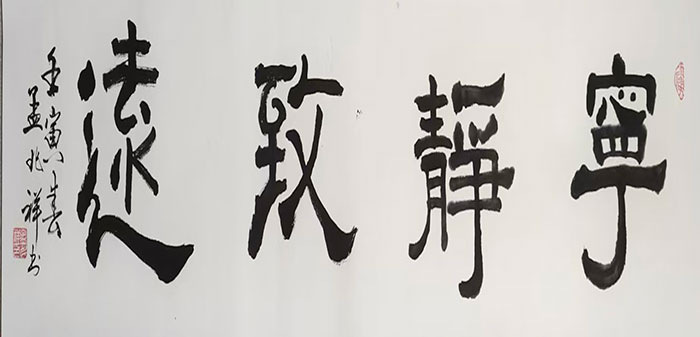 寧靜致遠
壬寅春
孟兆祥书